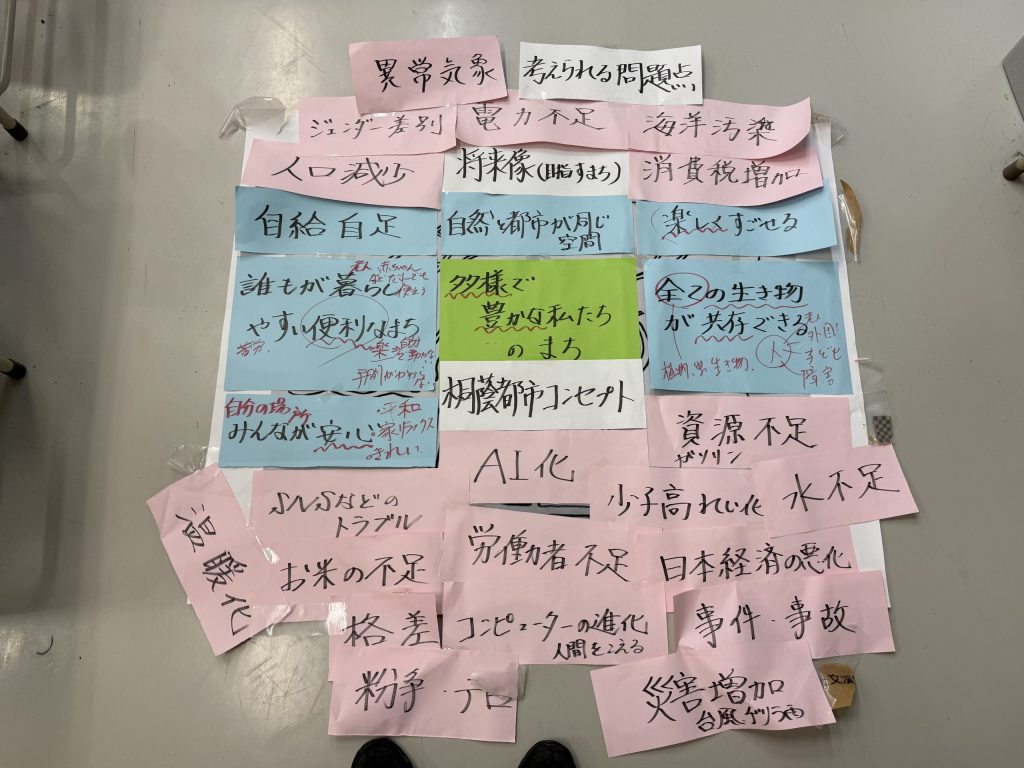 異常気象
考えられる問題点
ジェンダー差別
電力不足
海洋汚染
人口減少
将来像(目指すまち)
消費税増加
自給自足
自然と都市が同じ
空間
楽しくすごせる
老人 赤ちゃん
などだれでも
使える
誰もが暮らし
やすい便利なまち
苦労
多様で
豊かな私たち
のまち
全ての生き物
が共存できる
老人
外国
子ども
障害
人
植物、虫、生き物、
自分の場所
みんなが安心
平和
家リラックス
きれい
桐蔭都市コンセプト
資源不足
ガソリン
AI化
SNSなどの
トラブル
少子高れい化
水不足
温暖化
お米の不足
労働力者不足
日本経済の悪化
格差
コンピューターの進化
人間をこえる
事件・事故
紛争・テロ
災害増加
台風、ゲリラ雨